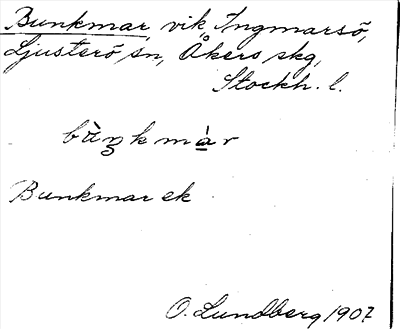 Bunkmar, vik, Ingmarsö,
Ljusterö sn, Åkers skg,
Stockh. l.
bùŋkmàr
Bunkmar ek
O. Lundberg 1907